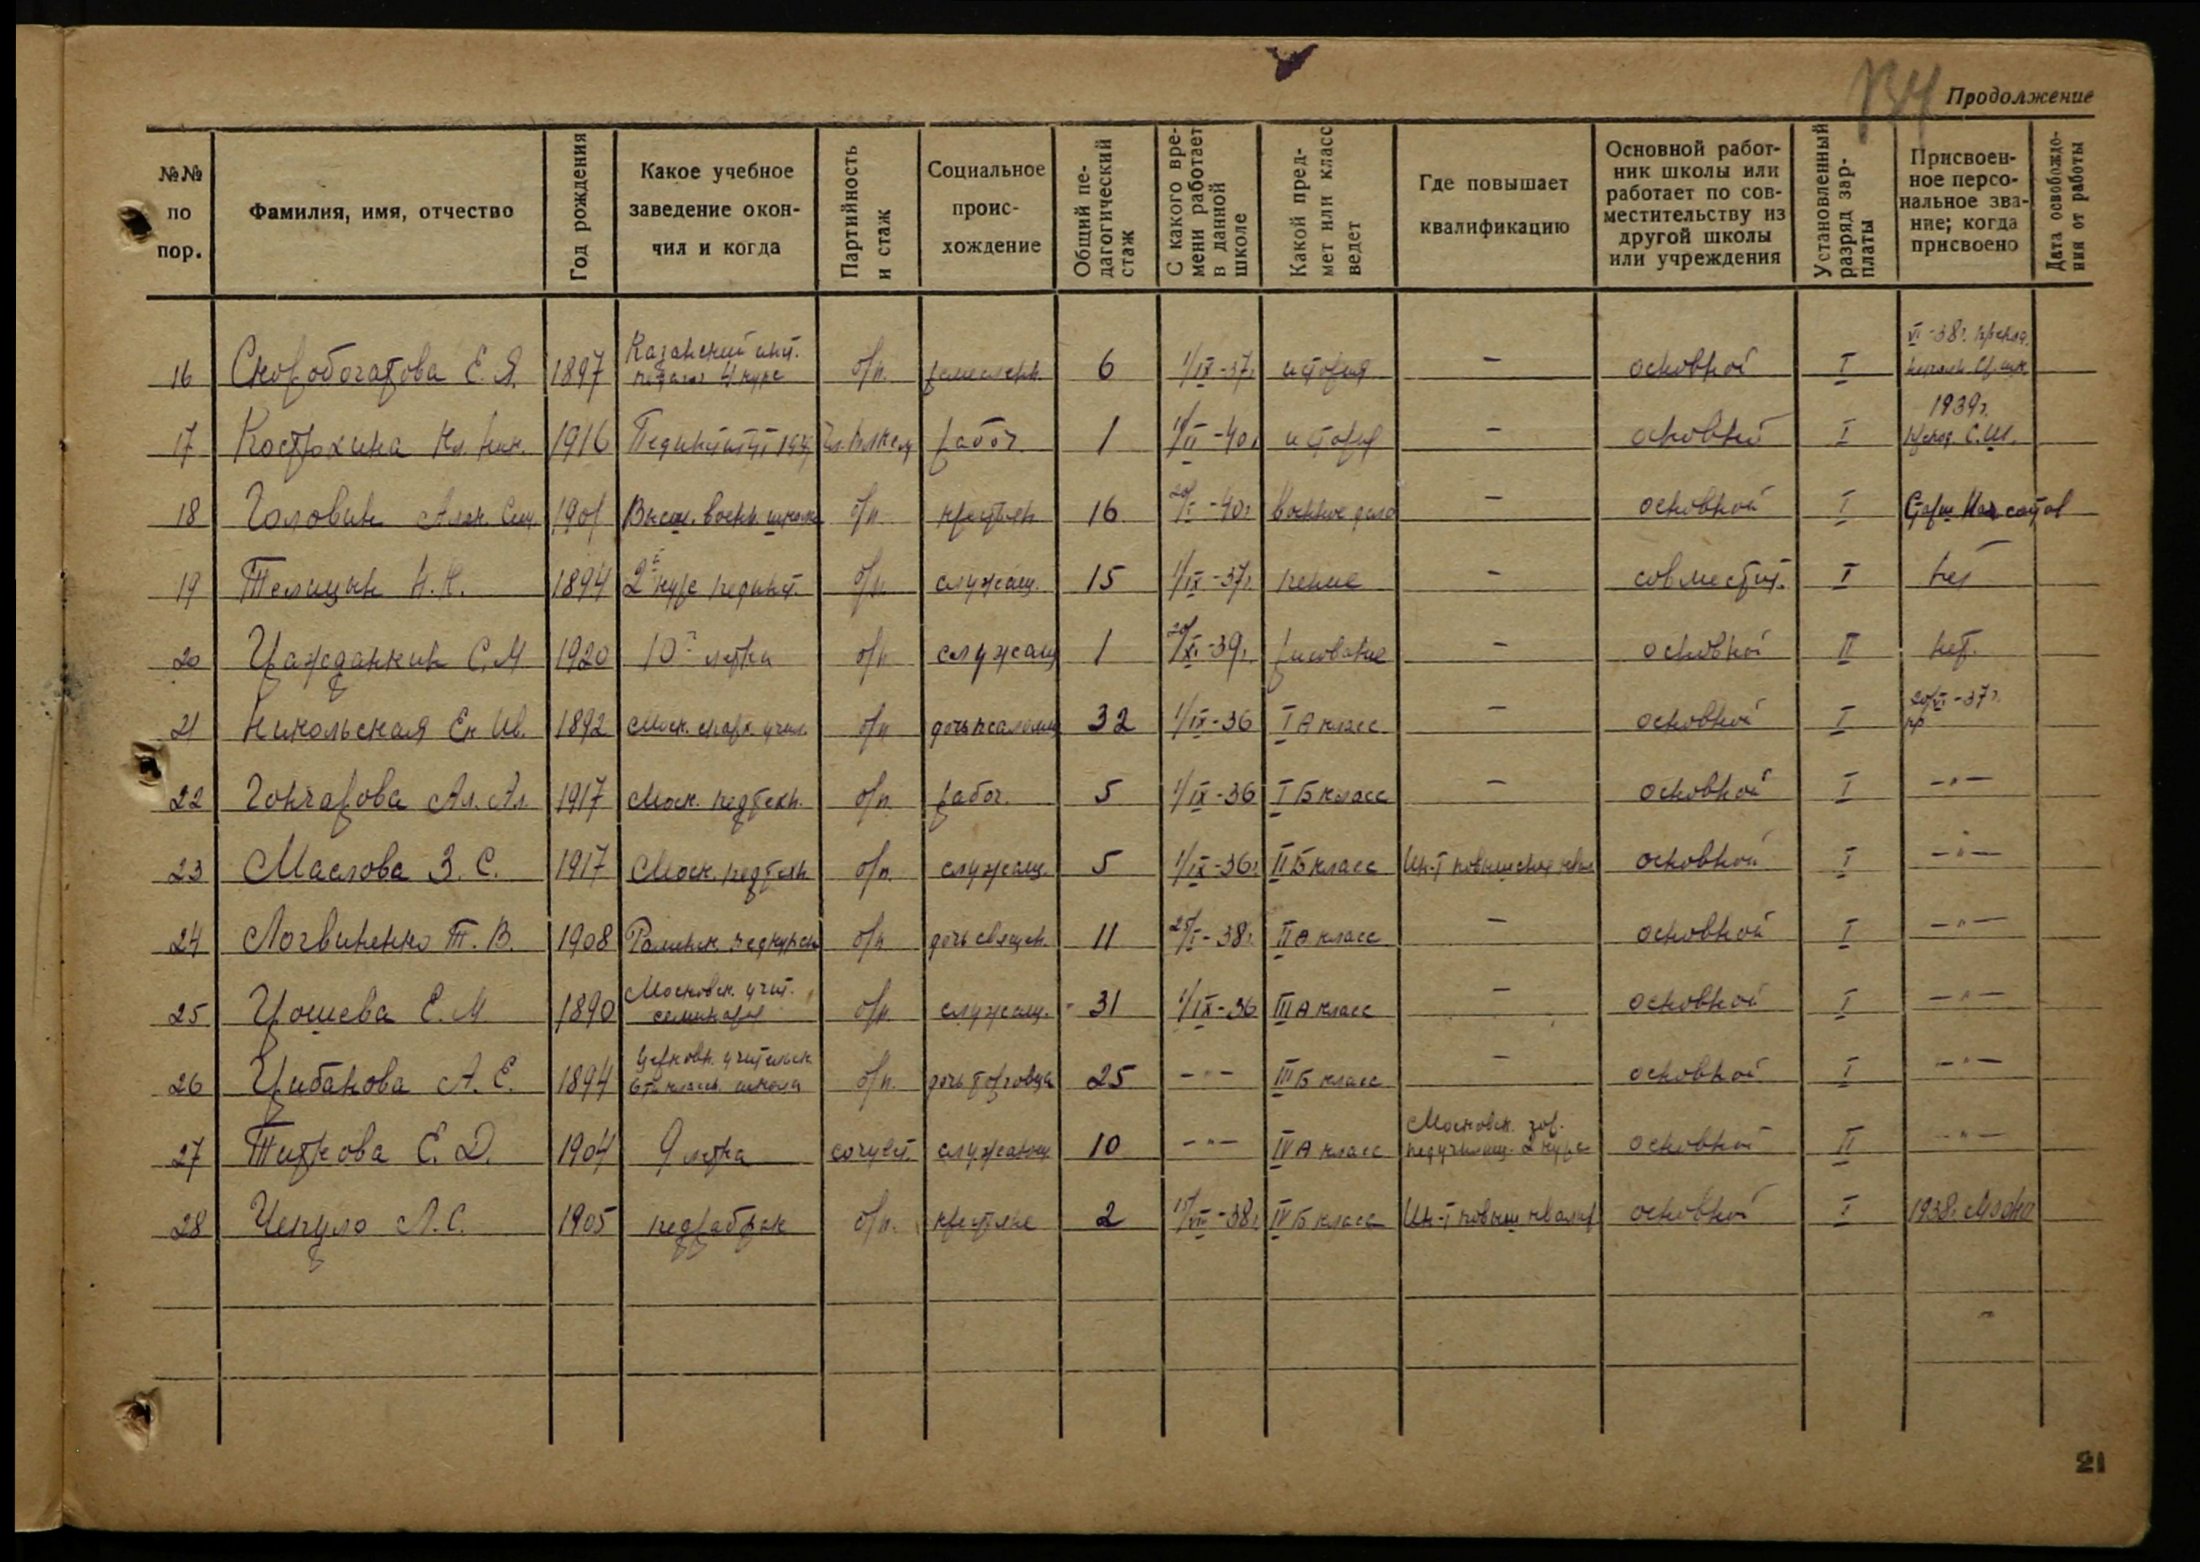 134
Продолжение
№№ по пор.
Фамилия, имя, отчество
Год рождения
Какое учебное заведение окончил и когда
Партийность и стаж
Социальное происхождение
Общий педагогический стаж
С какого времени работает в данной школе
Какой предмет или класс ведет
Где повышает квалификацию
Основной работник школы или работает по совместительству из другой школы или учреждения
Установленный разряд зарплаты
Присвоенное персональное звание; когда присвоено
Дата освобождения от работы
16 Скоробогатова Е. Я. 1897 Казанский инт. педагог 4 курс б/п. ремеслен. 6 1/IX-37г. история — основной I VI-38г.
17 Кострохина Кл. Ник. 1916 рабоч. 1 II-40г. история — основной I 1939г. С.Ш.
18 Головин Алек. Сем. 1901 Высш. воен. школа б/п. крестьян 16 20/I-40г. военное дело — основной I
19 Телицын Н. Н. 1894 2й курс пединст. б/п. служащ. 15 1/IX-37г. пение — совместит. I нет
20 Гражданкин С. М 1920 10-летка б/п служащ 1 20/XI-39г. рисование — основной II нет.
21 Никольская Ек Ив. 1892 Моск. епарх. учил. б/п дочь псаломщ 32 1/IX-36 I А класс — основной I 20/VI-37г.
22 Гончарова Ал. Ал. 1917 Моск. педтехн. б/п. рабоч. 5 1/IX-36 I Б класс — основной I —"—
23 Маслова З. С. 1917 Моск. педтехн б/п. служащ. 5 1/IX-36г. II Б класс Ин-т повышения квал основной I —"—
24 Логвиненко Т. В. 1908 педкурсы б/п дочь священ. 11 25/I-38г. II А класс — основной I —"—
25 Грошева Е. М 1890 Московск. учит. семинария б/п. служащ. 31 1/IX-36 III А класс — основной I —"—
26 Грибанова А. Е. 1894 Церковн. учительск. класс. школа б/п. дочь торговца 25 —"— III Б класс — основной I —"—
27 Титкова Е. Д. 1904 9 летка сочувст. служащ 10 —"— IV А класс Московск. педучилищ. 2 курс основной II —"—
28 Чепуло Л. С. 1905 педрабфак б/п. крестьяне 2 15/VIII-38г. IV Б класс Ин-т повыш квалиф основной I 1938г.
21